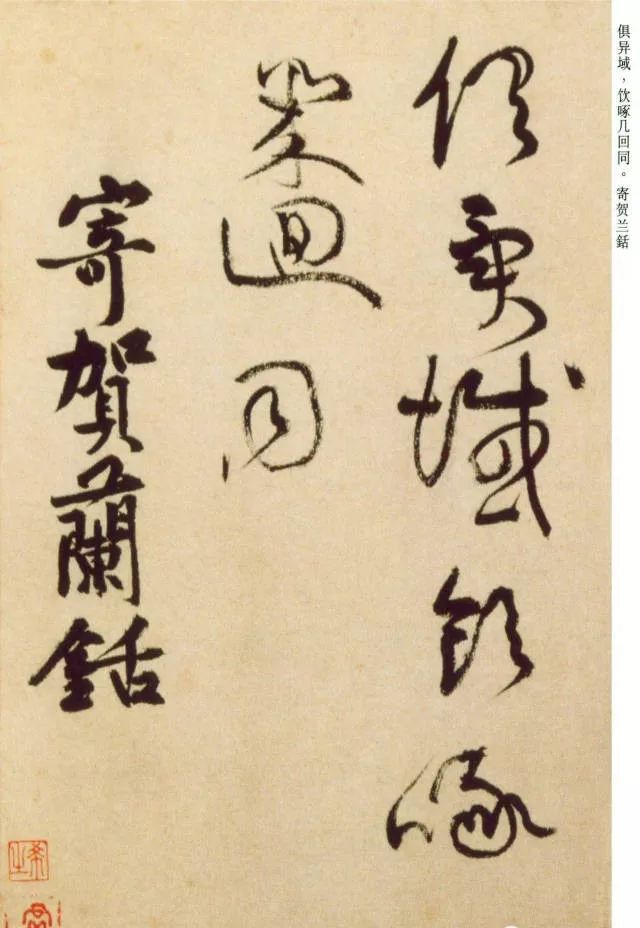 俱异域，饮啄几回同。寄贺兰銛
俱異域飲啄
幾迴同
寄賀蘭銛